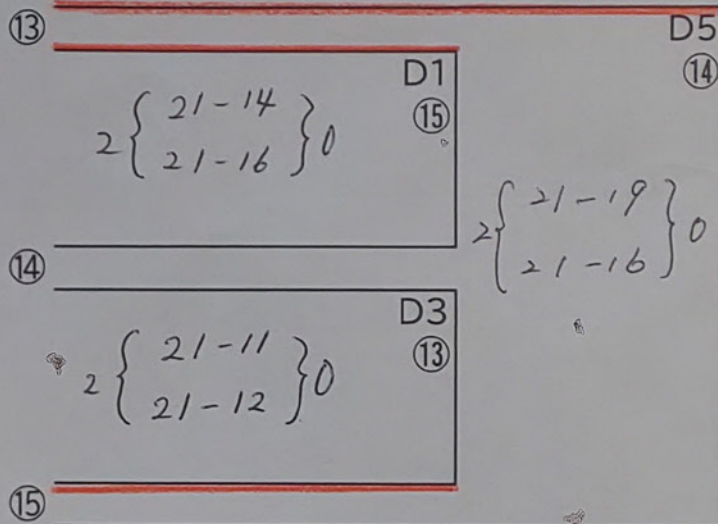 ⑬
D5
⑭
D1
⑮
2 { 21-14
21-16 } 0
2 { 21-19
21-16 } 0
⑭
D3
⑬
2 { 21-11
21-12 } 0
⑮